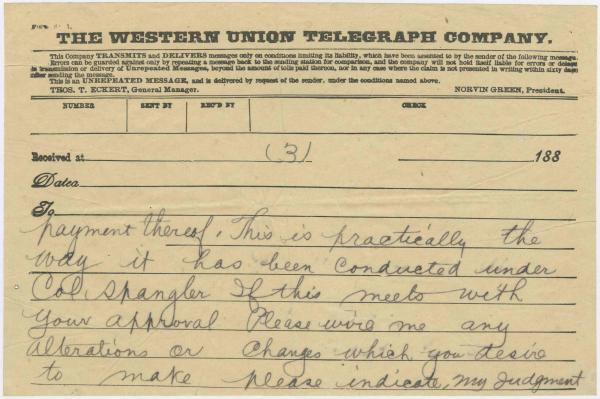 THE WESTERN UNION TELEGRAPH COMPANY.
This Company TRANSMITS and DELIVERS messages only on conditions limiting its liability, which have been assented to by the sender of the following message.
Errors can be guarded against only by repeating a message back to the sending station for comparison, and the company will not hold itself liable for errors or delays
in transmission or delivery of Unrepeated Messages, beyond the amount of tolls paid thereon, nor in any case where the claim is not presented in writing within sixty days
after sending the message.
This is an UNREPEATED MESSAGE, and is delivered by request of the sender, under the conditions named above.
THOS. T. ECKERT, General Manager. NORVIN GREEN, President.
NUMBER SENT BY REC'D BY CHECK
Received at (3) 188
Dated
To
payment thereof. This is practically the
way it has been conducted under
Col Spangler If this meets with
your approval Please wire me any
alterations or changes which you desire
to make please indicate, my Judgment